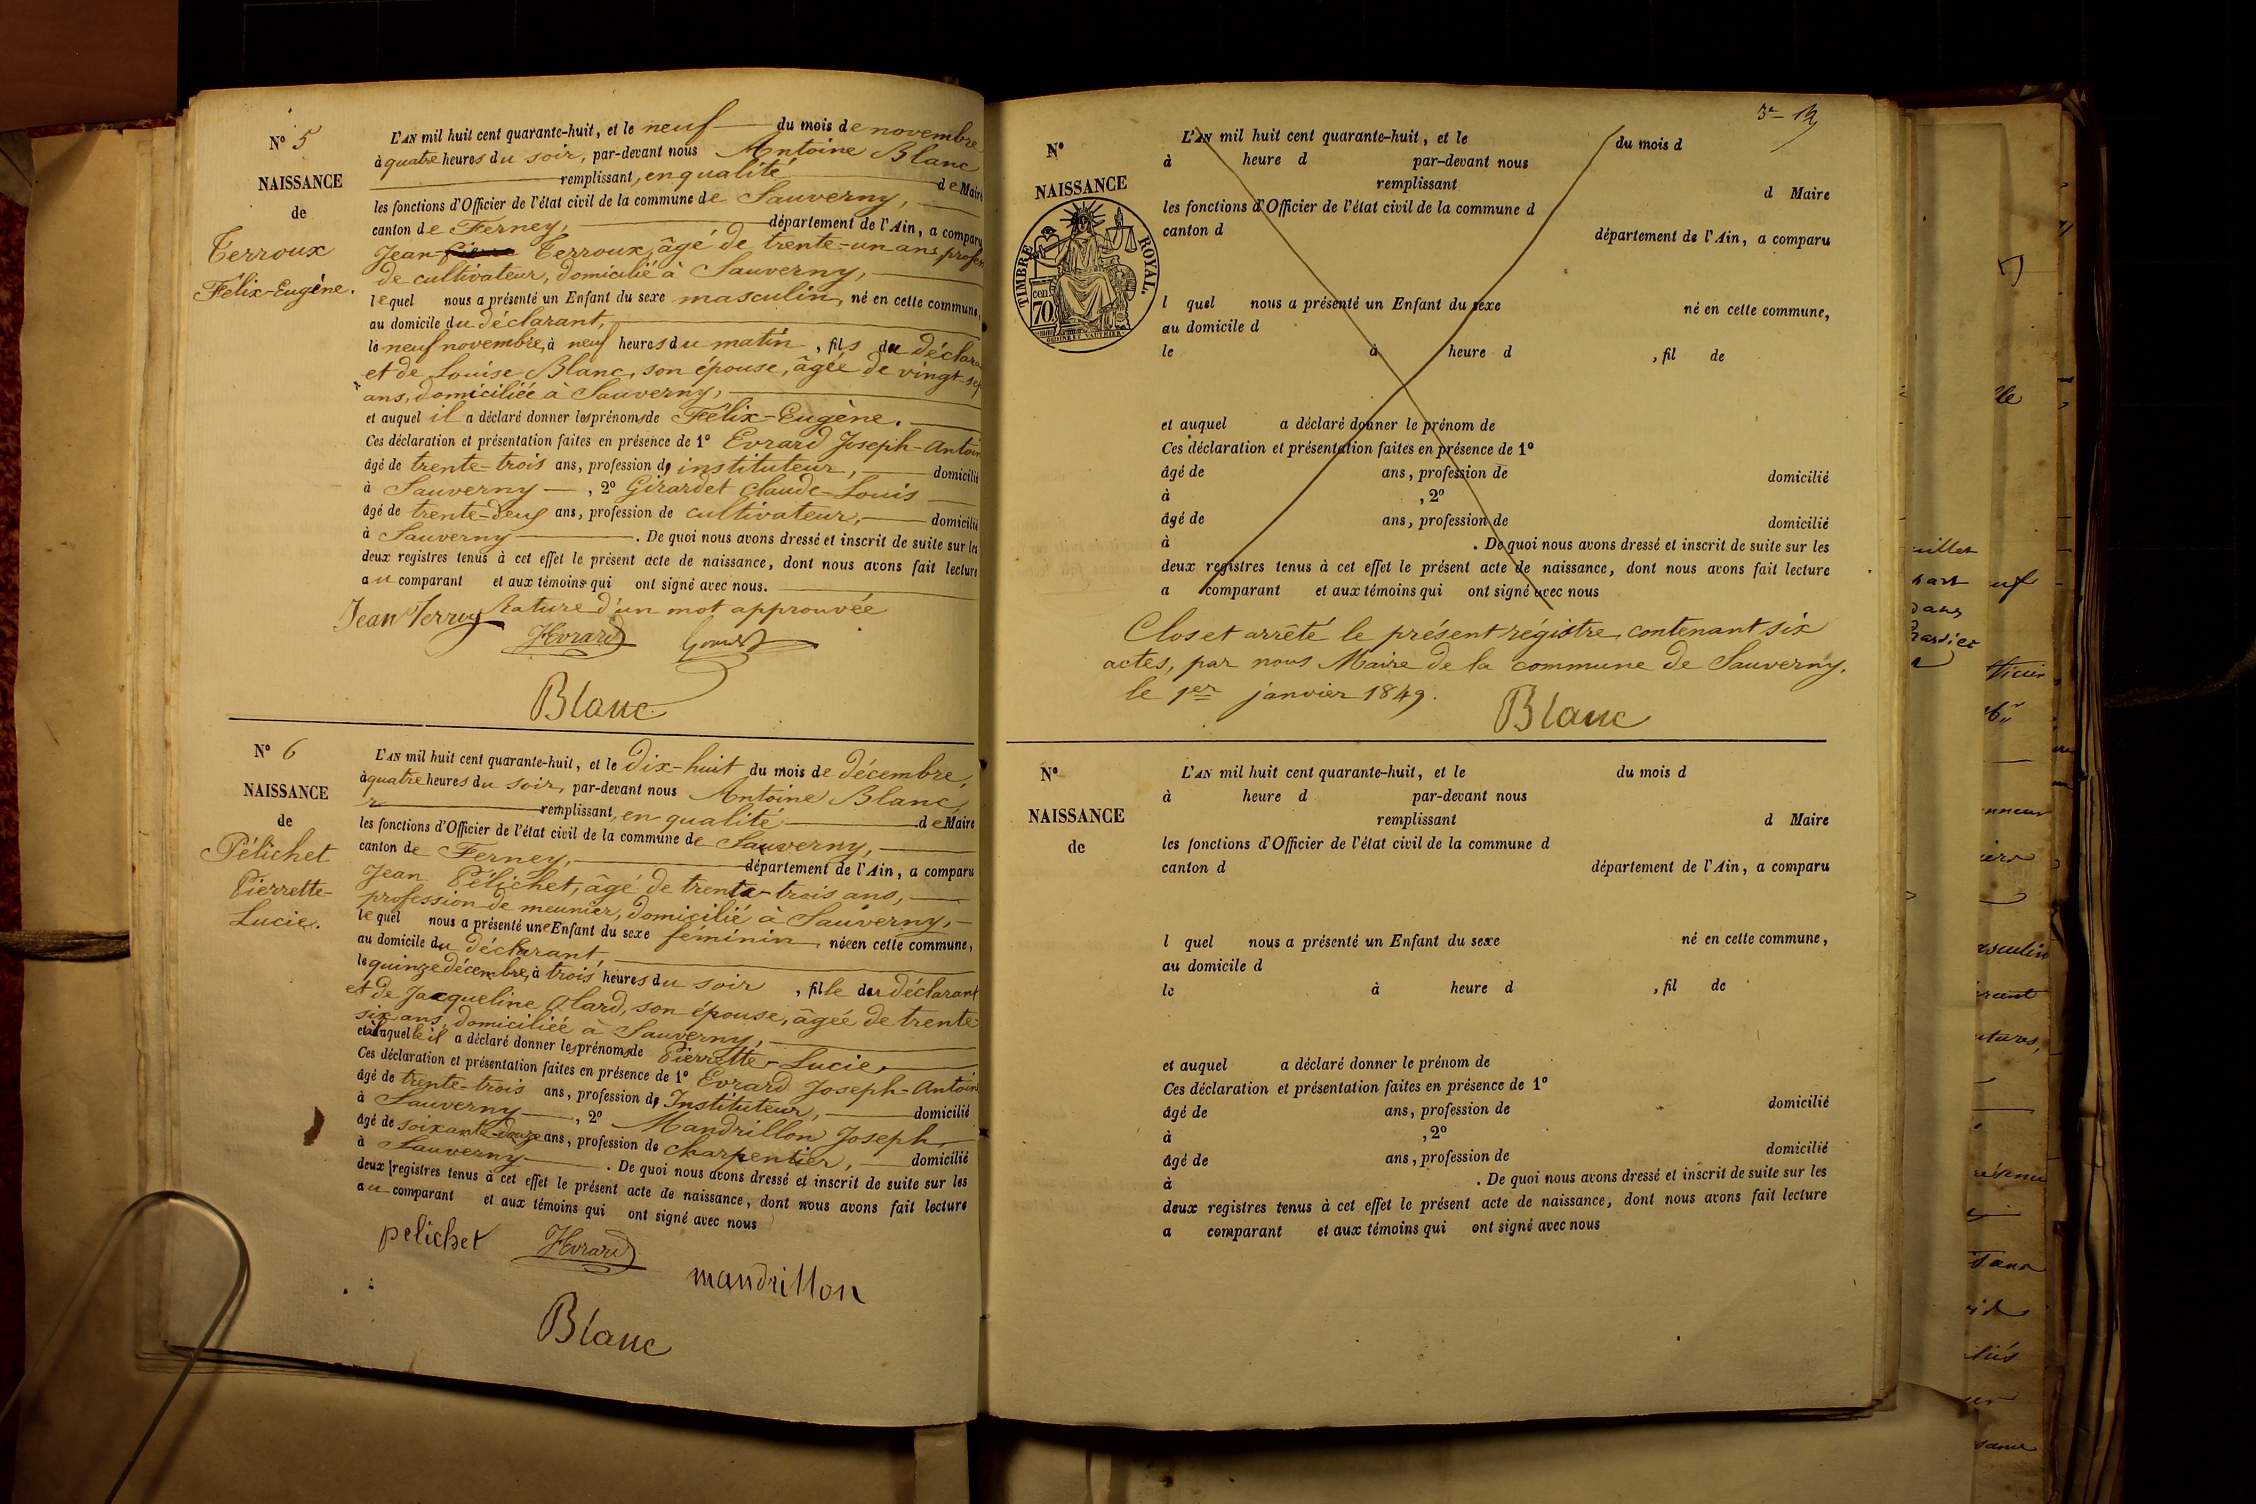 N° 5
NAISSANCE
de
Terroux
Félix-Eugène.
L'AN mil huit cent quarante-huit, et le neuf du mois de novembre
à quatre heures du soir, par-devant nous Antoine Blanc
remplissant, en qualité de Maire
les fonctions d'Officier de l'état civil de la commune de Sauverny,
canton de Ferney, département de l'Ain, a comparu
Jean Terroux, âgé de trente-un ans, profes
de cultivateur, domicilié à Sauverny,
lequel nous a présenté un Enfant du sexe masculin, né en cette commune,
au domicile du déclarant,
le neuf novembre, à neuf heures du matin, fils du déclara
et de Louise Blanc, son épouse, âgée de vingt-sep
ans, domiciliée à Sauverny,
et auquel il a déclaré donner les prénoms de Félix-Eugène.
Ces déclaration et présentation faites en présence de 1° Evrard Joseph-Antoin
âgé de trente-trois ans, profession d' instituteur, domicilié
à Sauverny, 2° Girardet Claude-Louis
âgé de trente-deux ans, profession de cultivateur, domicilié
à Sauverny. De quoi nous avons dressé et inscrit de suite sur les
deux registres tenus à cet effet le présent acte de naissance, dont nous avons fait lecture
au comparant et aux témoins qui ont signé avec nous.
Rature d'un mot approuvée
Jean Terroux
JEvrard
Blanc
N° 6
NAISSANCE
de
Pélichet
Pierrette-
Lucie.
L'AN mil huit cent quarante-huit, et le dix-huit du mois de décembre,
à quatre heures du soir, par-devant nous Antoine Blanc,
remplissant, en qualité de Maire
les fonctions d'Officier de l'état civil de la commune de Sauverny,
canton de Ferney, département de l'Ain, a comparu
Jean Pélichet, âgé de trente-trois ans,
profession de meunier, domicilié à Sauverny,
lequel nous a présenté une Enfant du sexe féminin, née en cette commune,
au domicile du déclarant,
le quinze décembre, à trois heures du soir, fille du déclarant
et de Jacqueline Olard, son épouse, âgée de trente-
six ans, domiciliée à Sauverny,
et à laquelle il a déclaré donner les prénoms de Pierrette-Lucie.
Ces déclaration et présentation faites en présence de 1° Evrard Joseph-Antoin
âgé de trente-trois ans, profession d' Instituteur, domicilié
à Sauverny, 2° Mandrillon Joseph,
âgé de soixante-douze ans, profession de charpentier, domicilié
à Sauverny. De quoi nous avons dressé et inscrit de suite sur les
deux registres tenus à cet effet le présent acte de naissance, dont nous avons fait lecture
au comparant et aux témoins qui ont signé avec nous
pelichet JEvrard
mandrillon
Blanc
N°
NAISSANCE
TIMBRE ROYAL.
70
L'AN mil huit cent quarante-huit, et le du mois d
à heure d par-devant nous
remplissant d Maire
les fonctions d'Officier de l'état civil de la commune d
canton d département de l'Ain, a comparu
l quel nous a présenté un Enfant du sexe né en cette commune,
au domicile d
le à heure d , fil de
et auquel a déclaré donner le prénom de
Ces déclaration et présentation faites en présence de 1°
âgé de ans, profession de domicilié
à , 2°
âgé de ans, profession de domicilié
à . De quoi nous avons dressé et inscrit de suite sur les
deux registres tenus à cet effet le présent acte de naissance, dont nous avons fait lecture
a comparant et aux témoins qui ont signé avec nous
Clos et arrêté le présent régistre, contenant six
actes, par nous Maire de la commune de Sauverny.
le 1er janvier 1849.
Blanc
N°
NAISSANCE
de
L'AN mil huit cent quarante-huit, et le du mois d
à heure d par-devant nous
remplissant d Maire
les fonctions d'Officier de l'état civil de la commune d
canton d département de l'Ain, a comparu
l quel nous a présenté un Enfant du sexe né en cette commune,
au domicile d
le à heure d , fil de
et auquel a déclaré donner le prénom de
Ces déclaration et présentation faites en présence de 1°
âgé de ans, profession de domicilié
à , 2°
âgé de ans, profession de domicilié
à . De quoi nous avons dressé et inscrit de suite sur les
deux registres tenus à cet effet le présent acte de naissance, dont nous avons fait lecture
a comparant et aux témoins qui ont signé avec nous